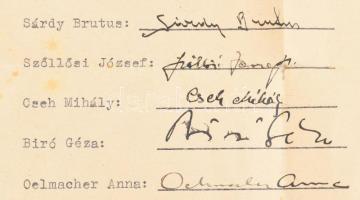 Sárdy Brutus: Sárdy Brutus
Szőllősi József: Szőllősi József
Cseh Mihály: Cseh Mihály
Biró Géza: Biró Géza
Oelmacher Anna: Oelmacher Anna